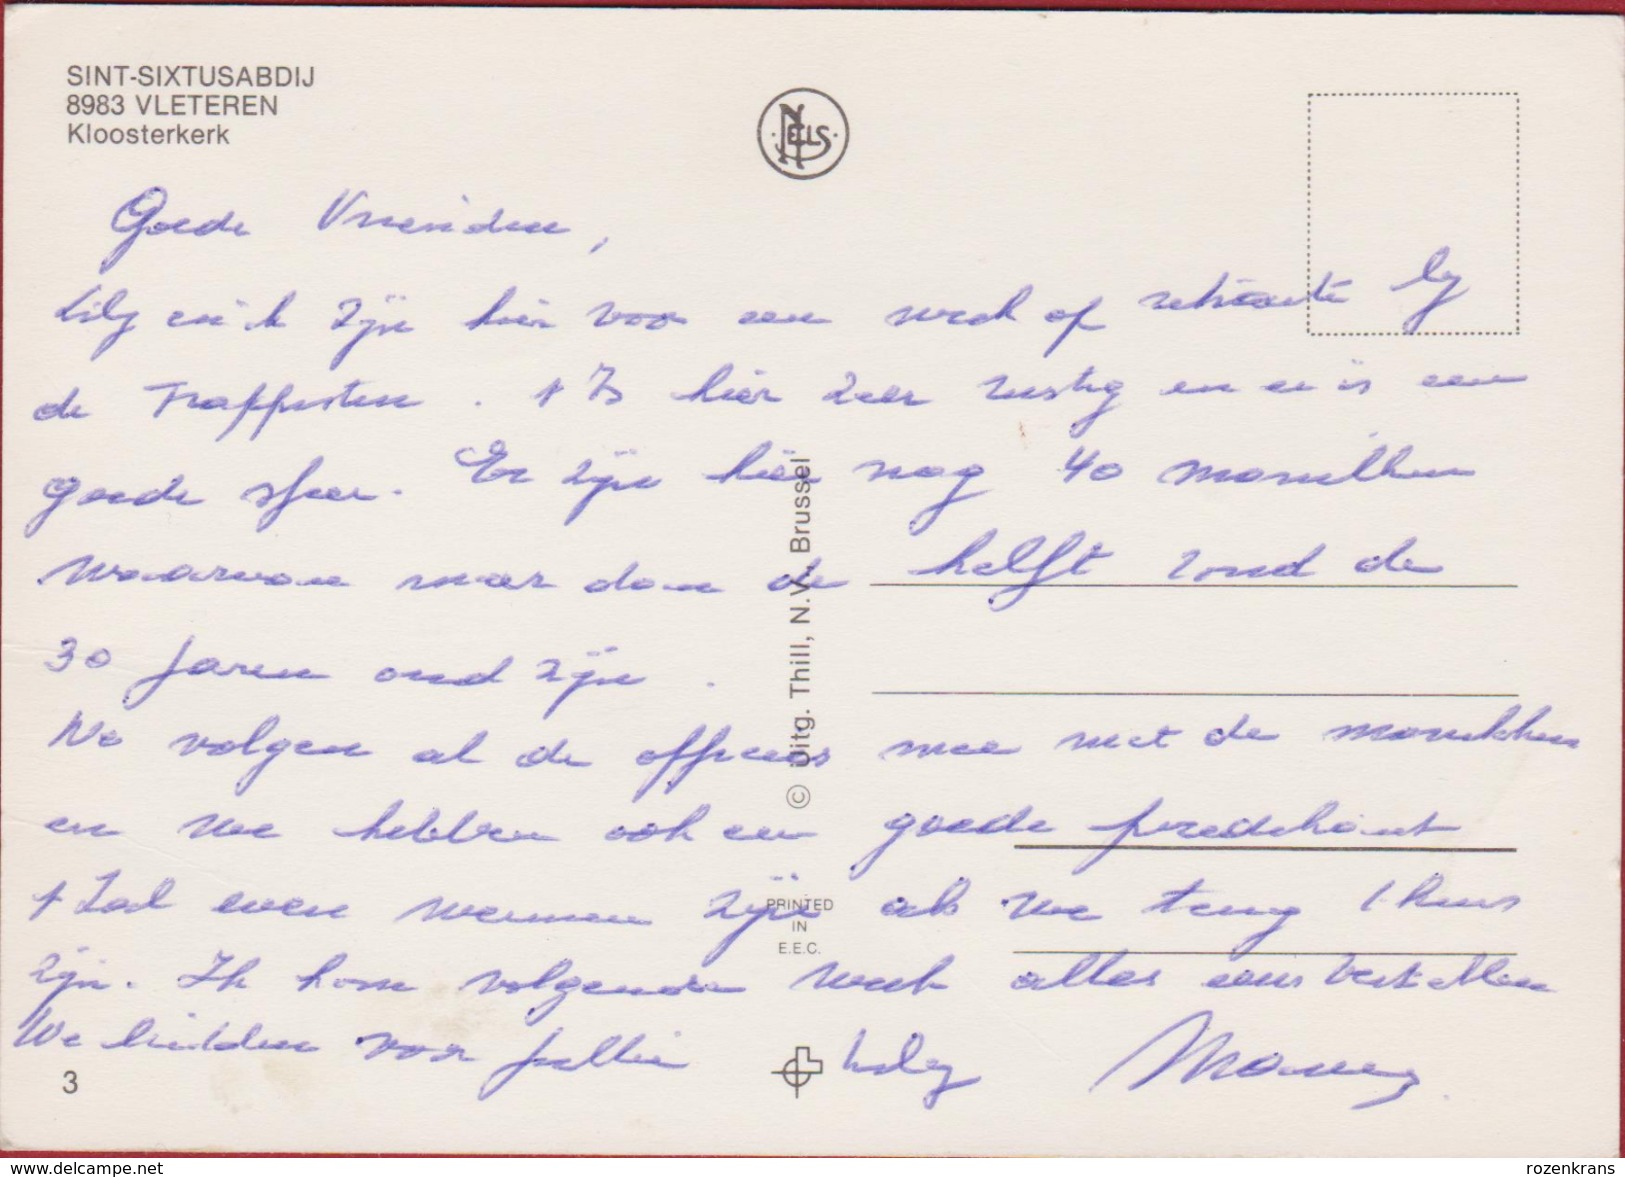 SINT-SIXTUSABDIJ
8983 VLETEREN
Kloosterkerk
NELS
Goede Vrienden,
Lily en ik zijn hier voor een week op retraite bij
de Trappisten. 't Is hier zeer rustig en er is een
goede sfeer. Er zijn hier nog 40 monikken
waarvan meer dan de helft rond de
30 jaren oud zijn.
We volgen al de officies mee met de monikken
en we hebben ook een goede predikant
't Zal even wennen zijn als we terug thuis
zijn. Ik kom volgende week alles eens vertellen
We bidden voor jullie Lily
© Uitg. Thill, N.V., Brussel
PRINTED
IN
E.E.C.
3
www.delcampe.net
rozenkrans